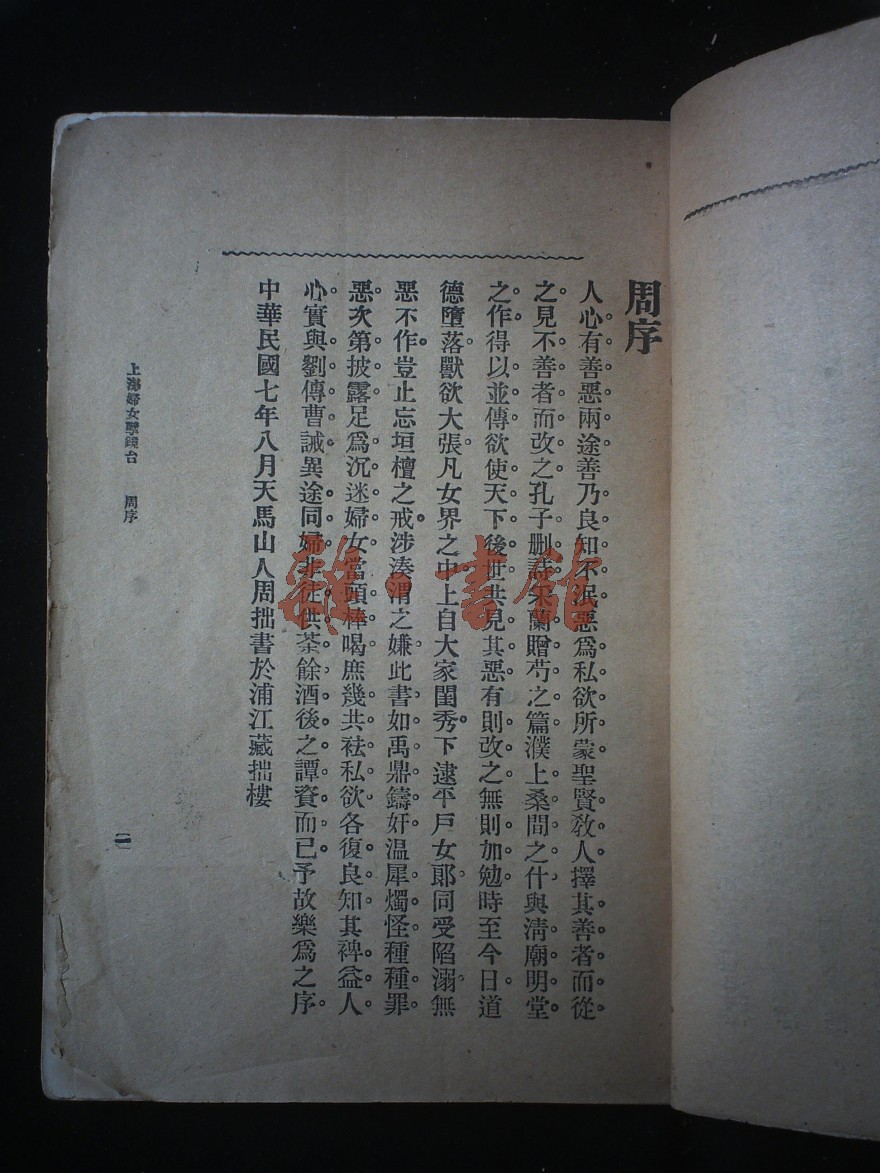 周序
人心有善惡兩途善乃良知不泯惡爲私欲所蒙聖賢教人擇其善者而從
之見不善者而改之孔子删詩采蘭贈芍之篇濮上桑間之什與淸廟明堂
之作得以並傳欲使天下後世共見其惡有則改之無則加勉時至今日道
德墮落獸欲大張凡女界之中上自大家閨秀下逮平戶女郞同受陷溺無
惡不作豈止忘垣檀之戒涉湊渭之嫌此書如禹鼎鑄奸温犀燭怪種種罪
惡次第披露足爲沉迷婦女當頭棒喝庶幾共袪私欲各復良知其裨益人
心實與劉傳曹誡異途同婦非徒供茶餘酒後之譚資而已予故樂爲之序
中華民國七年八月天馬山人周拙書於浦江藏拙樓
上海婦女孽鏡台 周序
二
雜·書館